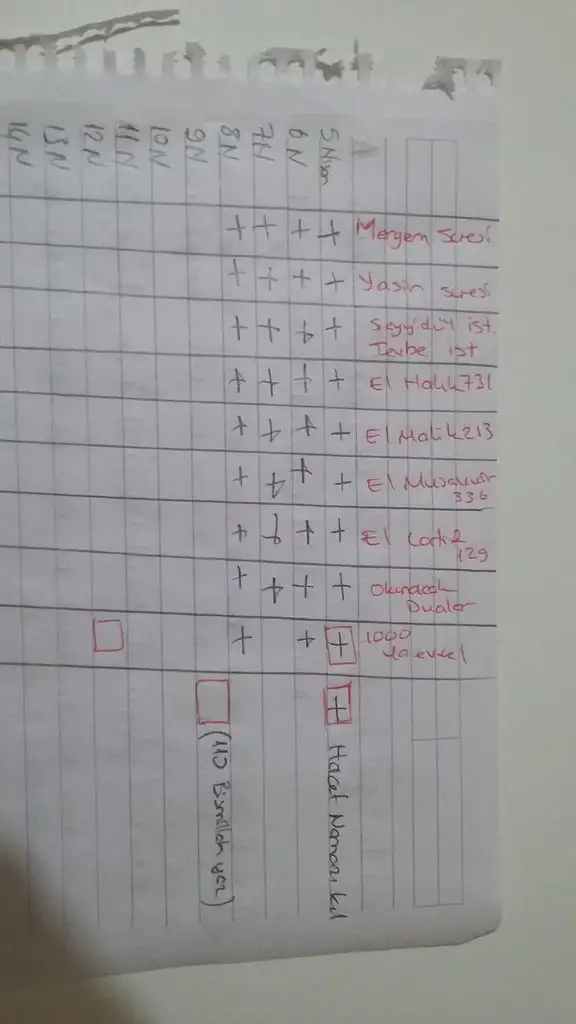 Meryem suresi
Yasin suresi
Seyyidül ist.
Tevbe ist
El Halık 731
El Malik 213
El Musavvir
336
El Latif
129
Okunacak
Dualar
1000
Ya evvel
5 Nisan + + + + + + + + +
Hacet Namazı kıl
6 N + + + + + + + + +
7 N + + + + + + + +
8 N + + + + + + + + +
9 N
(110 Bismillah yaz)
10 N
11 N
12 N
13 N
14 N